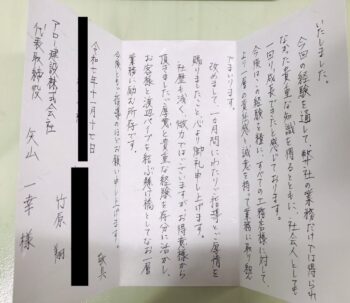 いたしました。
今回の経験を通して、弊社の業務だけでは得られ
なかった貴重な知識を得るとともに、社会人としても
一回り成長できたと感じております。
今後は、この経験を糧に、すべての工務店様に対して、
より一層の責任感と誠意を持って業務に取り組ん
でまいります。
改めまして、一ヵ月間にわたりご指導とご厚情を
賜りましたこと、心より御礼申し上げます。
社歴も浅く、微力ではございますが、お得意様から
頂きましたご厚意と貴重な経験を存分に活かし、
お客様と渡辺パイプを結ぶ懸け橋としてなお一層
業務に励む所存です。
今後ともご指導のほどお願い申し上げます。
敬具
令和七年十一月十七日
竹原 翔
アロー建設株式会社
代表取締役 矢山 一幸 様